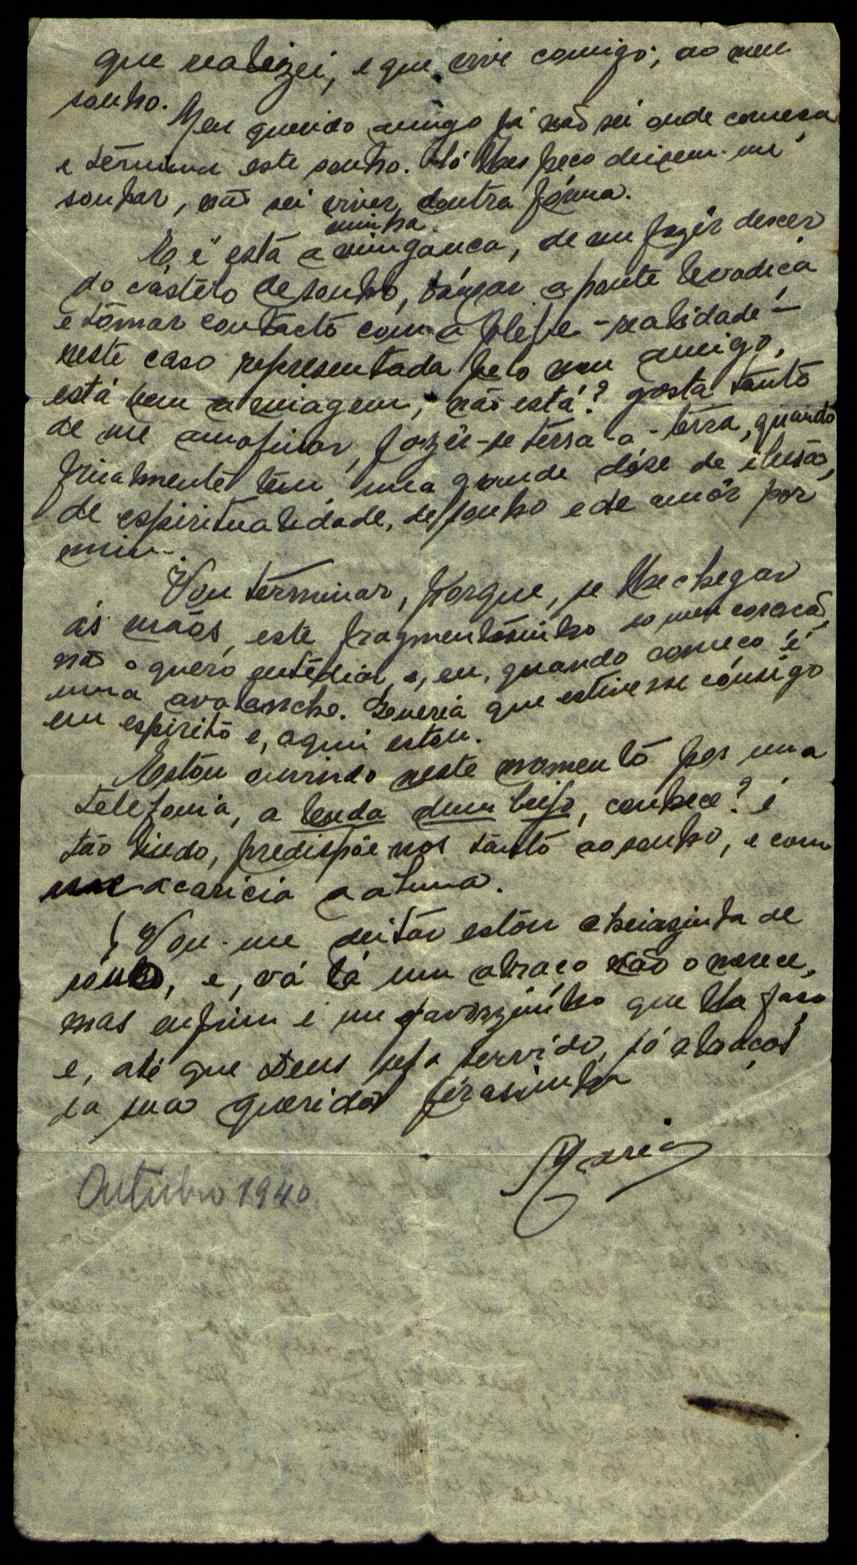 que realizei, e que vive comigo; ao meu
sonho.
Meu querido amigo já não sei onde começa
e termina este sonho. Só lhes peço deixem-me
sonhar, não sei viver doutra fórma.
E é está a minha vingança, de me fazer descer
do castelo de sonho, lançar a ponte levadiça
e tômar contacto com a plebe - realidade -
neste caso representada pelo meu amigo,
está bem a imagem, não está? gosta tanto
de me amofinar, fazer-se terra-a-terra, quando
finalmente tem uma grande dóse de ilusão,
de espiritualidade, de sonho e de amôr por
mim.
Vou terminar, porque, se lhe chegar
ás mãos, este fragmentosinho do meu coração,
não o quero entediar, e, eu, quando começo é
uma avalanche. Queria que estivesse consigo
em espirito e, aqui estou.
Estou ouvindo neste momento por uma
telefonia, a lenda dum beijo, conhece? é
tão lindo, predispõe-nos tanto ao sonho, e com
acaricia a alma.
Vou-me deitar estou cheiazinha de
sonho, e, vá lá um abraço não o merece,
mas enfim é um favorzinho que lhe faço
e, até que Deus seja servido, só abraços
da sua querida
Maria
Outubro 1940